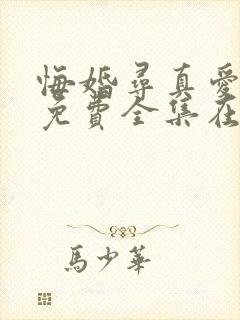 悔婚尋真愛
免費全集在
馬少華